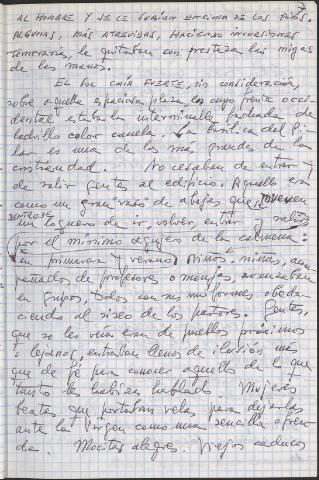 7
AL HOMBRE Y SE LE SUBÍAN ENCIMA DE LOS PIES.
ALGUNAS, MÁS ATREVIDAS, HACIENDO INVERSIONES
TEMERARIAS, le quitaban con presteza las migas
de las manos.
EL SOL CAÍA FUERTE, sin consideración,
sobre aquella espaciosa plaza, en cuyo frente occi-
dental estaba la interminable fachada de
ladrillo color canela. La basílica del Pi-
lar es una de las más grandes de la
cristiandad. No cesaban de entrar y
de salir gentes al edificio. Aquello era
como un gran vaso de abejas que mueven
un loquero de ir, volver, entrar y salir
por el mínimo agujero de la colmena:
en primavera y verano. Niños, niñas, acom
pañados de profesores o monjas, avanzaban
en grupos, todos con sus uniformes obede-
ciendo al siseo de los pastores. Gentes,
que se les veía eran de pueblos próximos
o lejanos, entraban llenos de ilusión más
que de fe para conocer aquello de lo que
tanto les habían hablado. Mujeres
beatas que portaban velas para dejarlas
ante la Virgen como una sencilla ofren
da. Mocitas alegres. Viejos caducos